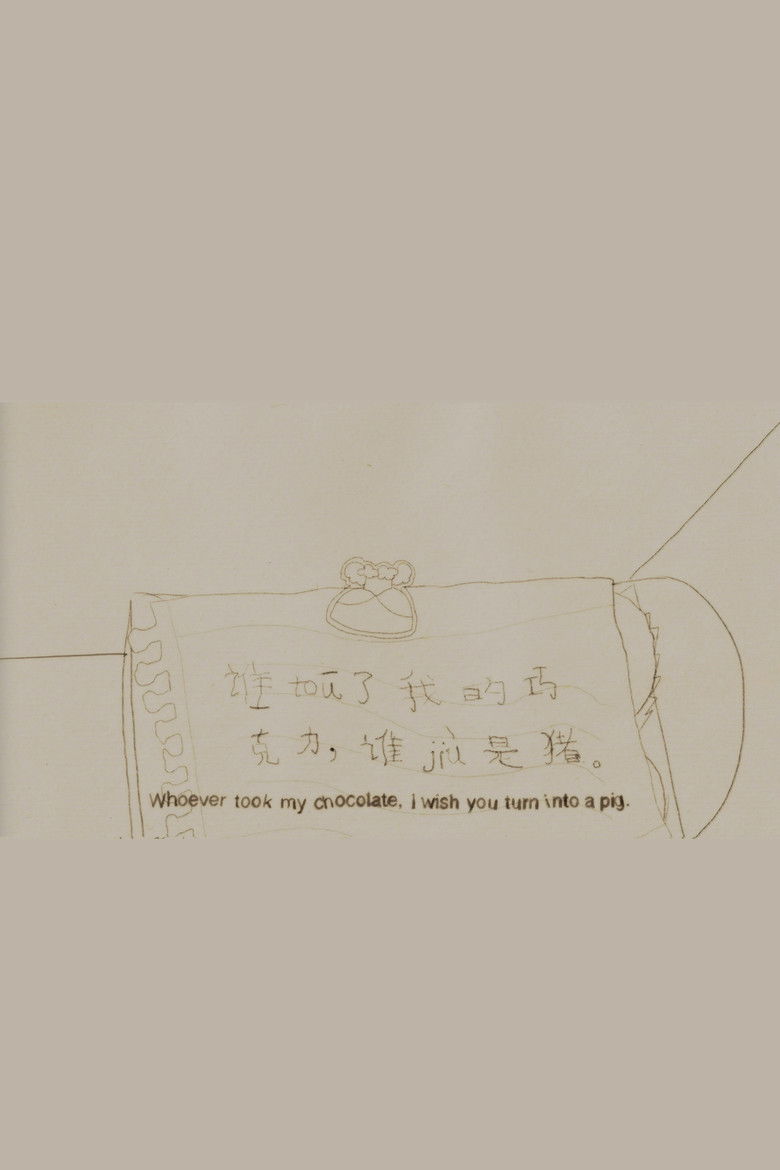 谁 tōu 了 我 的 巧
克 力，谁 jiù 是 猪。
Whoever took my chocolate, I wish you turn into a pig.